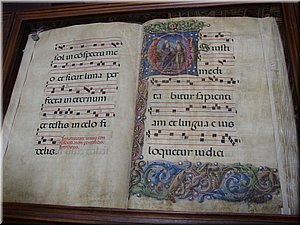 sol in conspectu me
o et sicut luna per
fecta in eternum
et testis in celo fi
delis.
OS iusti
medi
tabitur sapienti
am et lingua eius
loquetur iudici